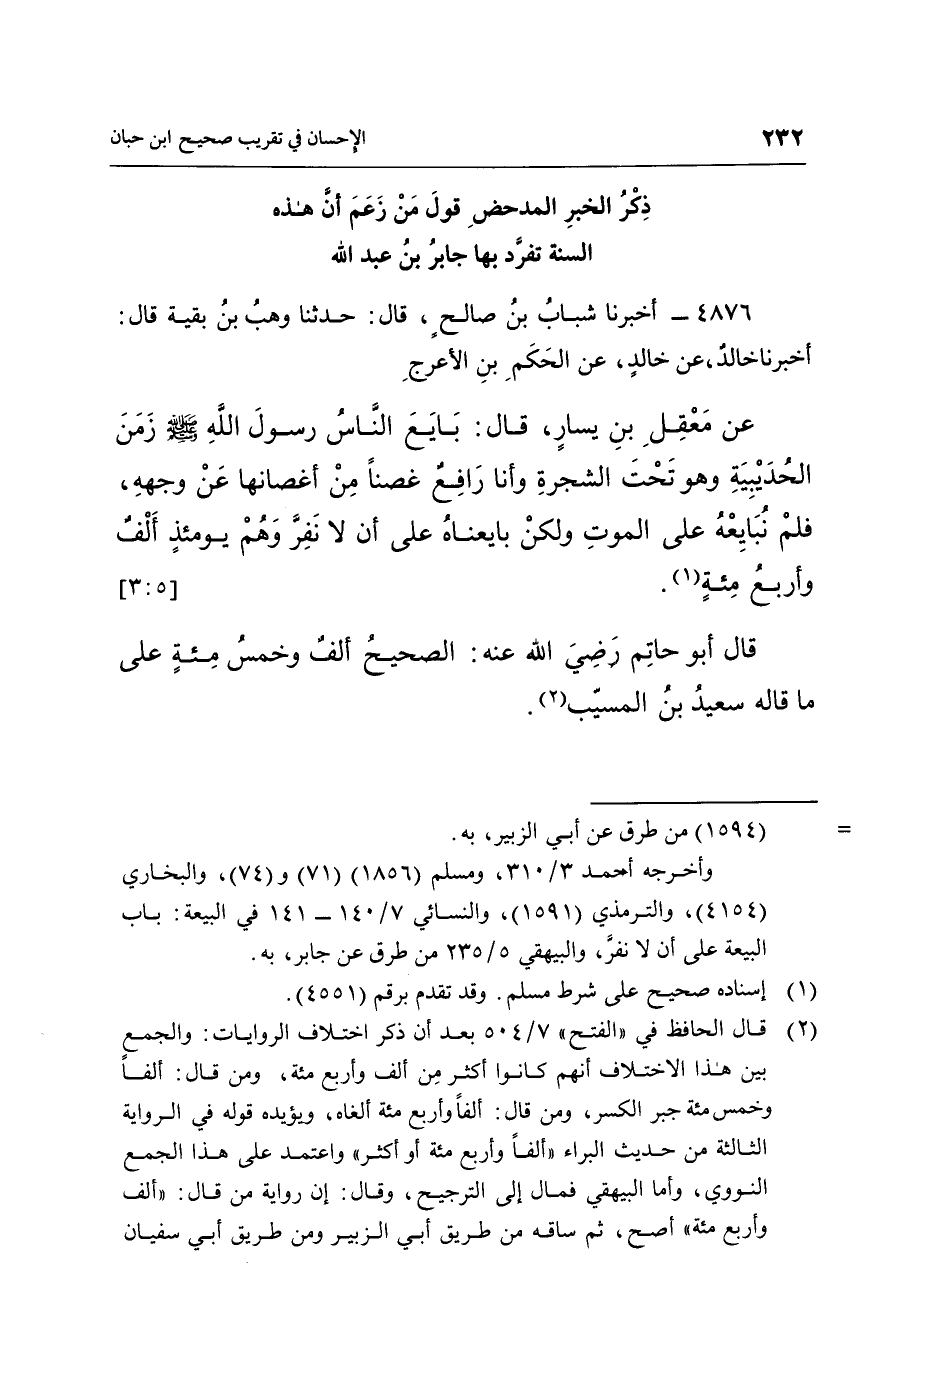 ٢٣٢ الإحسان في تقريب صحيح ابن حبان
ذِكْرُ الخبرِ المدحضِ قولَ مَنْ زَعَمَ أنَّ هذه
السنة تفرَّد بها جابرُ بنُ عبد الله
٤٨٧٦ ـ أخبرنا شبابُ بنُ صالحٍ، قال: حدثنا وهبُ بنُ بقية قال:
أخبرنا خالدٌ، عن خالدٍ، عن الحَكَمِ بنِ الأعرجِ
عن مَعْقِلِ بنِ يسارٍ، قال: بَايَعَ النَّاسُ رسولَ اللَّهِ ﷺ زَمَنَ
الحُدَيْبِيَةِ وهو تَحْتَ الشجرةِ وأنا رَافِعٌ غصناً مِنْ أغصانها عَنْ وجههِ،
فلمْ نُبَايِعْهُ على الموتِ ولكنْ بايعناهُ على أن لا نَفِرَّ وَهُمْ يومئذٍ أَلْفٌ
وأربعُ مِئةٍ(١). [٣:٥]
قال أبو حاتِم رَضِيَ الله عنه: الصحيحُ ألفٌ وخمسُ مِئةٍ على
ما قاله سعيدُ بنُ المسيّب(٢).
= (١٥٩٤) من طرق عن أبي الزبير، به.
وأخرجه أحمد ٣١٠/٣، ومسلم (١٨٥٦) (٧١) و(٧٤)، والبخاري
(٤١٥٤)، والترمذي (١٥٩١)، والنسائي ١٤٠/٧ ـ ١٤١ في البيعة: باب
البيعة على أن لا نفرَّ، والبيهقي ٢٣٥/٥ من طرق عن جابر، به.
(١) إسناده صحيح على شرط مسلم. وقد تقدم برقم (٤٥٥١).
(٢) قال الحافظ في «الفتح» ٥٠٤/٧ بعد أن ذكر اختلاف الروايات: والجمع
بين هذا الاختلاف أنهم كانوا أكثر مِن ألف وأربع مئة، ومن قال: ألفاً
وخمس مئة جبر الكسر، ومن قال: ألفاً وأربع مئة ألغاه، ويؤيده قوله في الرواية
الثالثة من حديث البراء «ألفاً وأربع مئة أو أكثر» واعتمد على هذا الجمع
النووي، وأما البيهقي فمال إلى الترجيح، وقال: إن رواية من قال: «ألف
وأربع مئة» أصح، ثم ساقه من طريق أبي الزبير ومن طريق أبي سفيان